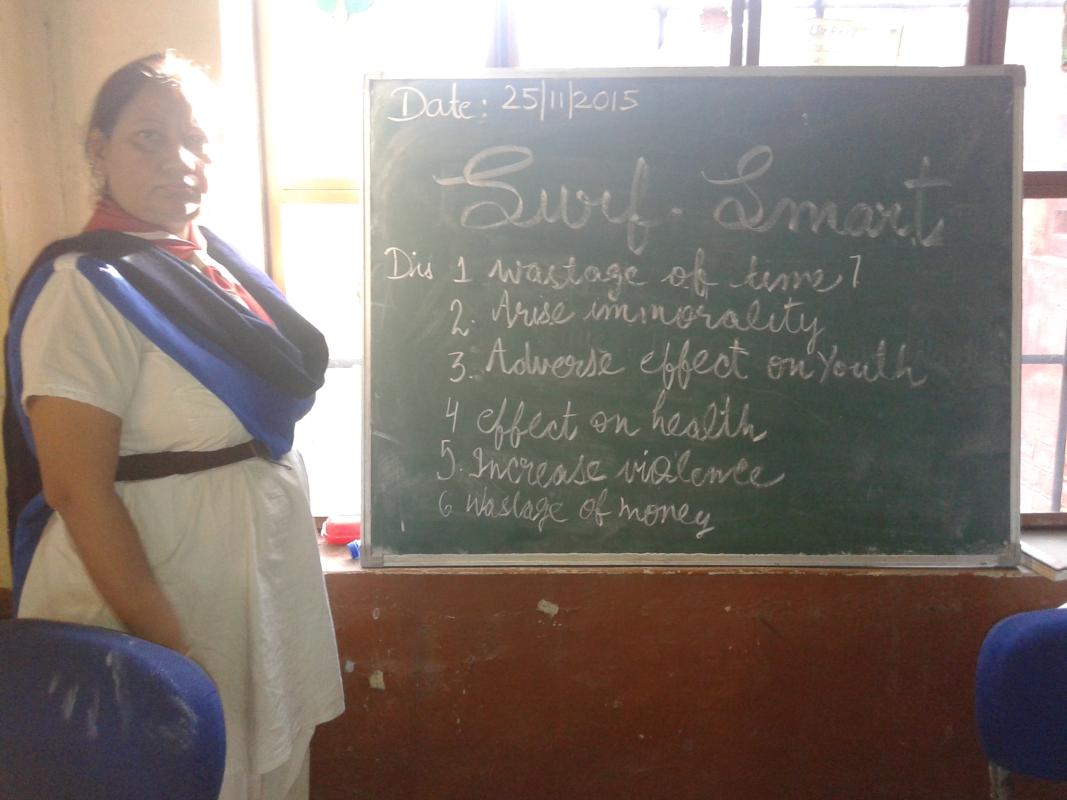 Date: 25/11/2015
Surf-Smart
Dis 1 wastage of time 7
2. Arise immorality
3. Adverse effect on Youth
4 effect on health
5. Increase violence
6 Wastage of money